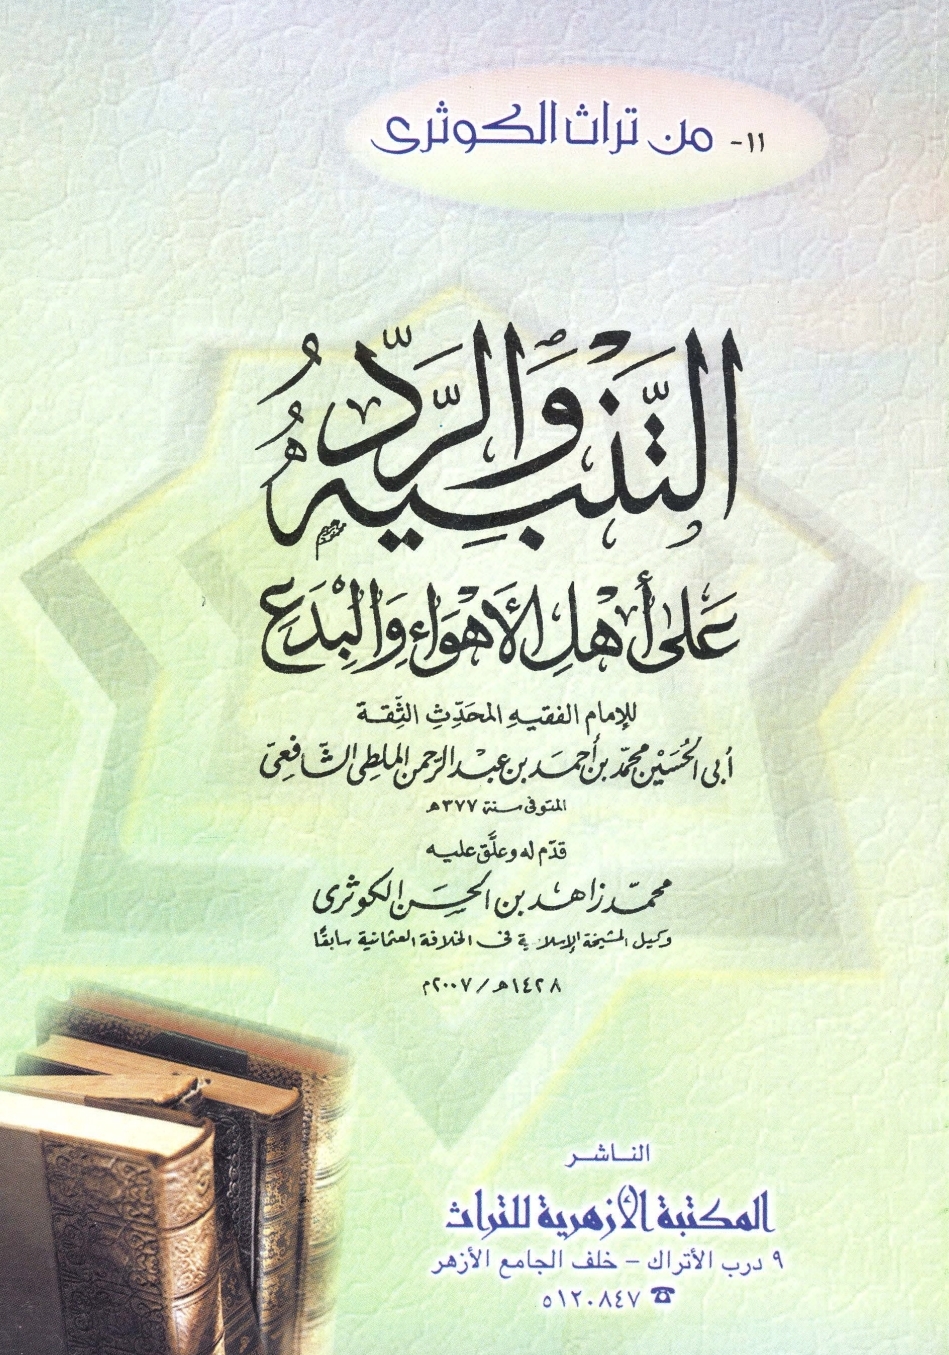 ١١- من تراث الكوثرى
التَّنْبِيهُ وَالرَّدُّ
عَلَى أَهْلِ الأَهْوَاءِ وَالْبِدَعِ
للإمام الفقيهِ المحَدِّثِ الثِّقة
أبى الحُسَيْن محمّد بن أحمَد بن عبْد الرَّحمن الملَطِى الشَّافعىّ
المتوفى سنة ٣٧٧هـ
قدّم له وعلَّق عليه
محمّد زاهد بن الحسَن الكوثرى
وكيل المشيخة الإسلامية فى الخلافة العثمانية سابقًا
١٤٢٨هـ / ٢٠٠٧م
الناشر
المكتبة الأزهرية للتراث
٩ درب الأتراك – خلف الجامع الأزهر
☎ ٥١٢٠٨٤٧